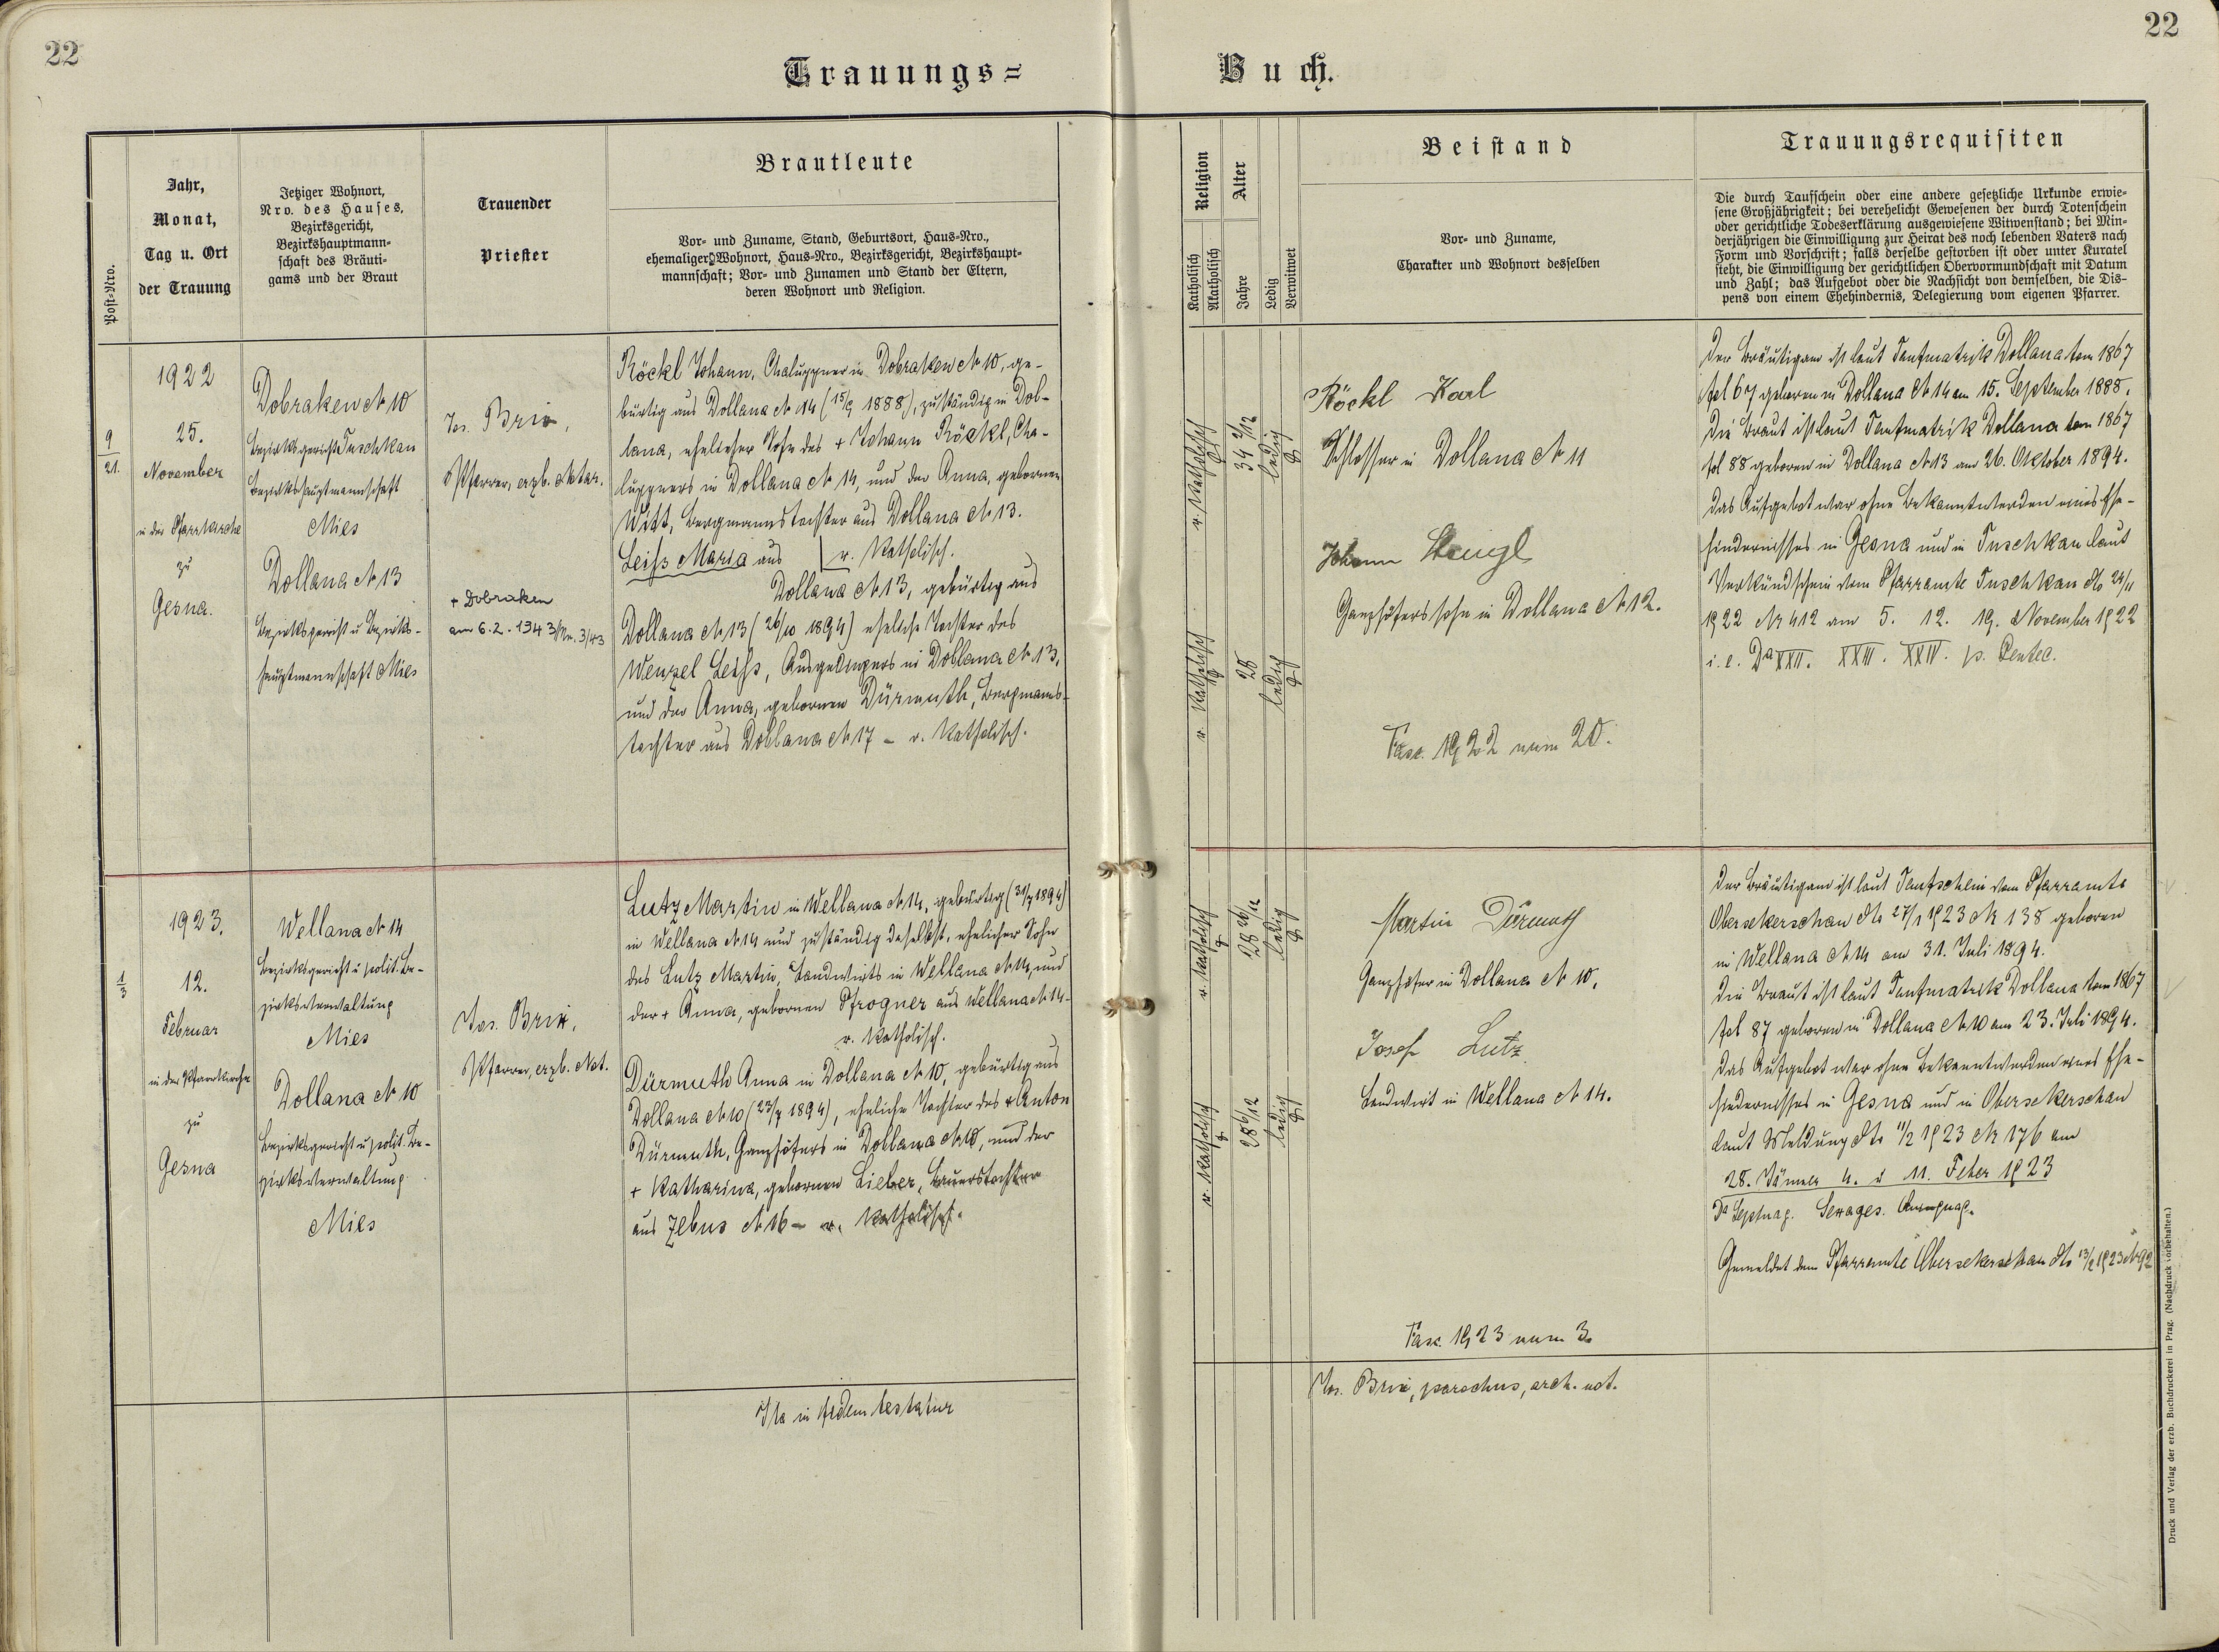 22
22
Trauungs=
Buch.
Post-Nro.
Jahr,
Monat,
Tag u. Ort
der Trauung
Jetziger Wohnort,
Nro. des Hauses,
Bezirksgericht,
Bezirkshauptmann-
schaft des Bräuti-
gams und der Braut
Trauender
Priester
Brautleute
Vor- und Zuname, Stand, Geburtsort, Haus-Nro.,
ehemaliger Wohnort, Haus-Nro., Bezirksgericht, Bezirkshaupt-
mannschaft; Vor- und Zunamen und Stand der Eltern,
deren Wohnort und Religion.
Religion
Katholisch
Akatholisch
Alter
Jahre
Ledig
Verwitwet
Beistand
Vor- und Zuname,
Charakter und Wohnort desselben
Trauungsrequisiten
Die durch Taufschein oder eine andere gesetzliche Urkunde erwie-
sene Großjährigkeit; bei verehelicht Gewesenen der durch Totenschein
oder gerichtliche Todeserklärung ausgewiesene Witwenstand; bei Min-
derjährigen die Einwilligung zur Heirat des noch lebenden Vaters nach
Form und Vorschrift; falls derselbe gestorben ist oder unter Kuratel
steht, die Einwilligung der gerichtlichen Obervormundschaft mit Datum
und Zahl; das Aufgebot oder die Nachsicht von demselben, die Dis-
pens von einem Ehehindernis, Delegierung vom eigenen Pfarrer.
9
21.
1922
25.
November
in der Pfarrkirche
zu
Gesna.
Dobraken N 10
Bezirksgericht Tuschkau
Bezirkshauptmannschaft
Mies
Dollana N 13
Bezirksgericht u Bezirks-
hauptmannschaft Mies
Jos. Brix,
Pfarrer, erzb. Notar.
+ Dobraken
am 6.2.1943/Nr. 3/43
Röckl Johann, Chaluppner in Dobraken N 10, ge-
bürtig aus Dollana N 14 (15/9 1888), zuständig in Dol-
lana, ehelicher Sohn des + Johann Röckl, Cha-
luppners in Dollana N 14, und der Anna, gebornen
Witt, Bergmannstochter aus Dollana N 13.
Leiss Maria aus | r. Katholisch.
Dollana N 13, gebürtig aus
Dollana N 13 (26/10 1894) eheliche Tochter des
Wenzel Leiss, Ausgedingers in Dollana N 13,
und der Anna, gebornen Dürmuth, Bergmanns-
tochter aus Dollana N 17 - r. Katholisch.
r. Katholisch
34 2/12
ledig
r. Katholisch
28
ledig
Röckl Karl
Schlosser in Dollana N 11
Johann Stengl
Ganzhöferssohn in Dollana N 12.
Fasc. 1922 num 20.
Der Bräutigam ist laut Taufmatrik Dollana tom 1867
fol 67 geboren in Dollana N 14 am 15. September 1888.
Die Braut ist laut Taufmatrik Dollana tom 1867
fol 88 geboren in Dollana N 13 am 26. Oktober 1894.
Das Aufgebot war ohne Bekanntwerden eines Ehe-
hindernisses in Gesna und in Tuschkau laut
Verkündschein vom Pfarramte Tuschkau dto 24/11
1922 Nr 412 am 5. 12. 19. November 1922
i. e. Da XXII. XXIII. XXIV. p. Pentec.
1
3
1923.
12.
Februar
in der Pfarrkirche
zu
Gesna
Wellana N 14
Bezirksgericht u polit. Be-
zirksverwaltung
Mies
Dollana N 10
Bezirksgericht u polit. Be-
zirksverwaltung
Mies
Jos. Brix,
Pfarrer, erzb. Not.
Lutz Martin in Wellana N 14, gebürtig (31/7 1894)
in Wellana N 14 und zuständig daselbst, ehelicher Sohn
des Lutz Martin, Landwirts in Wellana N 14, und
der + Anna, gebornen Pfrogner aus Wellana N 14-
r. Katholisch.
Dürmuth Anna in Dollana N 10, gebürtig aus
Dollana N 10 (23/7 1894), eheliche Tochter des + Anton
Dürmuth, Ganzhöfers in Dollana N 10, und der
+ Katharina, gebornen Lieber, Bauerstochter
aus Zebus N 16 - r. Katholisch.
r. Katholisch
28 6/12
ledig
r. Katholisch
28 6/12
ledig
Martin Dürmuth
Ganzhöfer in Dollana N 10,
Josef Lutz
Landwirt in Wellana N 14.
Fasc. 1923 num 3.
Der Bräutigam ist laut Taufschein vom Pfarramte
Obersekerschan dto 27/1 1923 Nr 138 geboren
in Wellana N 14 am 31. Juli 1894.
Die Braut ist laut Taufmatrik Dollana tom 1867
fol 87 geboren in Dollana N 10 am 23. Juli 1894.
Das Aufgebot war ohne Bekanntwerden eines Ehe-
hindernisses in Gesna und in Obersekerschan
laut Meldung dto 11/2 1923 Nr 176 am
28. Jänner 4. u 11. Feber 1923
Da Septuag. Sexages. Quinquag.
Gemeldet dem Pfarramte Obersekerschan dto 13/2 1923 Nr 92
Ita in fidem testatur
Jos. Brix, parochus, arch. not.
Druck und Verlag der erzb. Buchdruckerei in Prag. (Nachdruck vorbehalten.)